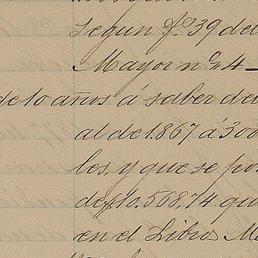 Segun fº 39 del
Mayor n º 4 —
de 10 años á saber de
al de 1.867 á 300
les, y que se po
de $10.568,74 qu
en el Libro M